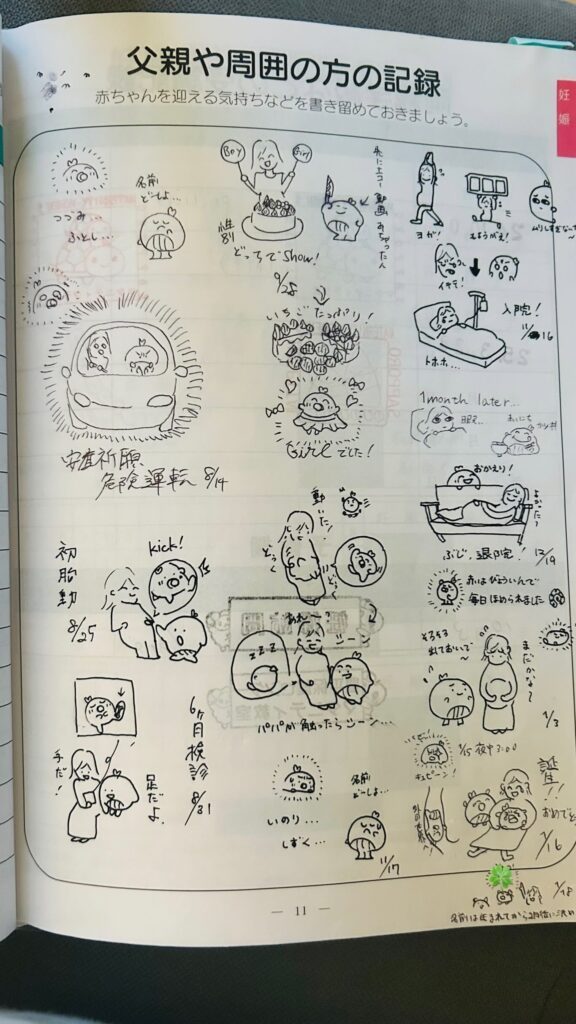 父親や周囲の方の記録
赤ちゃんを迎える気持ちなどを書き留めておきましょう。
妊娠
つづみ...
ふとし...
名前
どーしよ...
Boy
Girl
性別
どっちでShow!
9/28
先にエコー動画みちゃった人
ヨガ!
イヤミ!
入院!
11/16
トホホ...
いちごたっぷり!
Girlでした!
安産祈願
危険運転 8/14
1month later...
暇...
おかえり!
よかった?
ぶじ、退院! 12/19
赤はびょういんで
毎日ほめられました
初胎動
8/25
kick!
動いた!
どっく
どっく
あれ〜っ
シーン
zzz
パパが触ったらシーン...
そろそろ
出ておいで〜
まだかな〜
1/3
6ヶ月検診
8/31
手だ!
足だよ
いのり...
しずく...
名前
どーしよ...
11/17
1/15 夜中3:00
キュピーン!
誕生!!
おめでと
1/16
1/18
名前は生まれてから2日後に決め
— 11 —